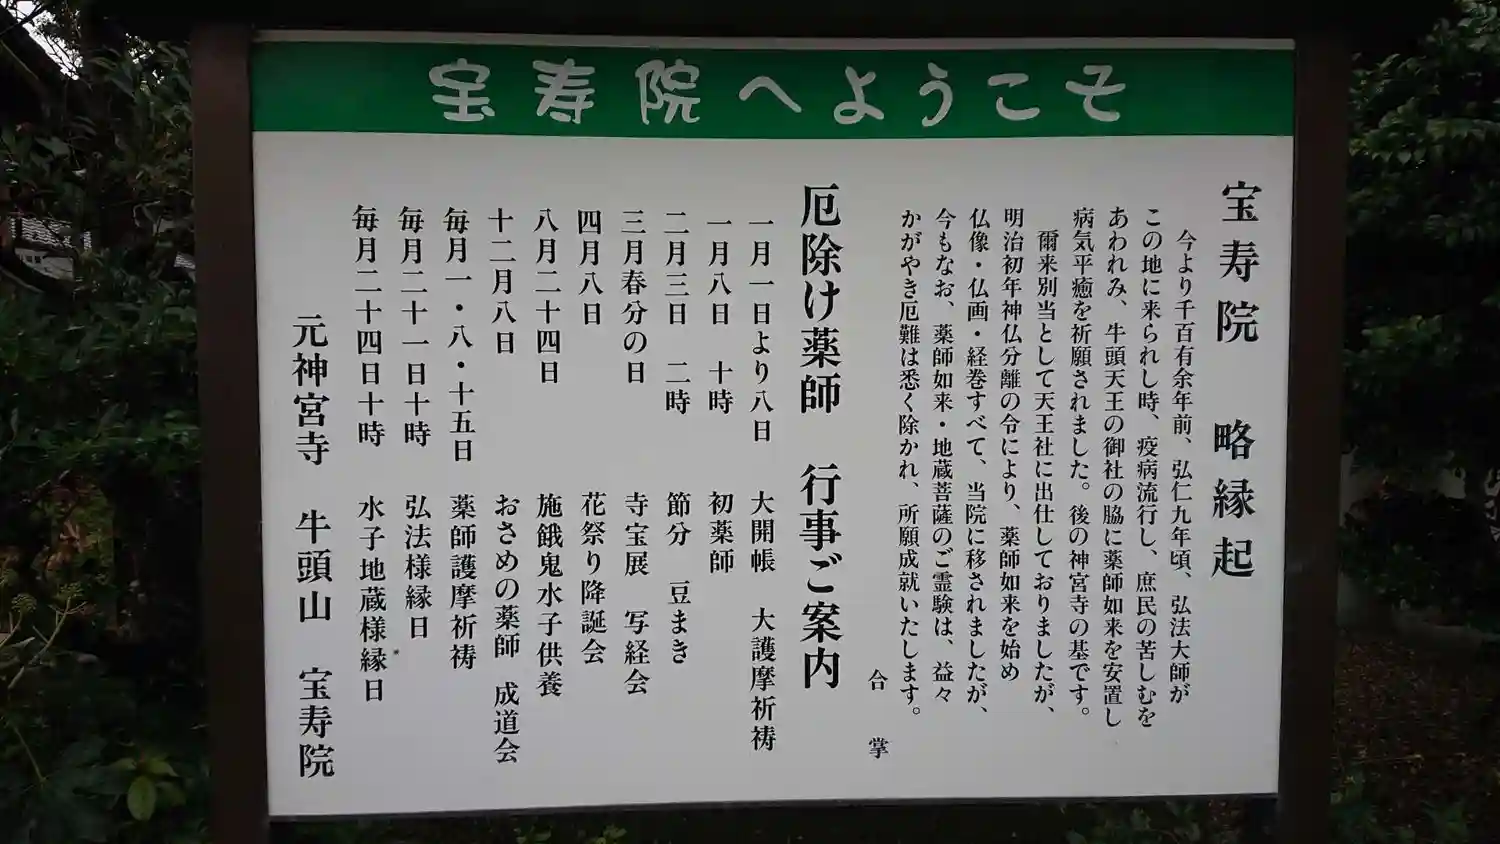 宝寿院へようこそ
宝寿院　略縁起
今より千百有余年前、弘仁九年頃、弘法大師が
この地に来られし時、疫病流行し、庶民の苦しむを
あわれみ、牛頭天王の御社の脇に薬師如来を安置し
病気平癒を祈願されました。後の神宮寺の基です。
爾来別当として天王社に出仕しておりましたが、
明治初年神仏分離の令により、薬師如来を始め
仏像・仏画・経巻すべて、当院に移されましたが、
今もなお、薬師如来・地蔵菩薩のご霊験は、益々
かがやき厄難は悉く除かれ、所願成就いたします。
合掌
厄除け薬師　行事ご案内
一月一日より八日　大開帳　大護摩祈祷
一月八日　十時　初薬師
二月三日　二時　節分　豆まき
三月春分の日　寺宝展　写経会
四月八日　花祭り降誕会
八月二十四日　施餓鬼水子供養
十二月八日　おさめの薬師　成道会
毎月一・八・十五日　薬師護摩祈祷
毎月二十一日十時　弘法様縁日
毎月二十四日十時　水子地蔵様縁日
元神宮寺　牛頭山　宝寿院